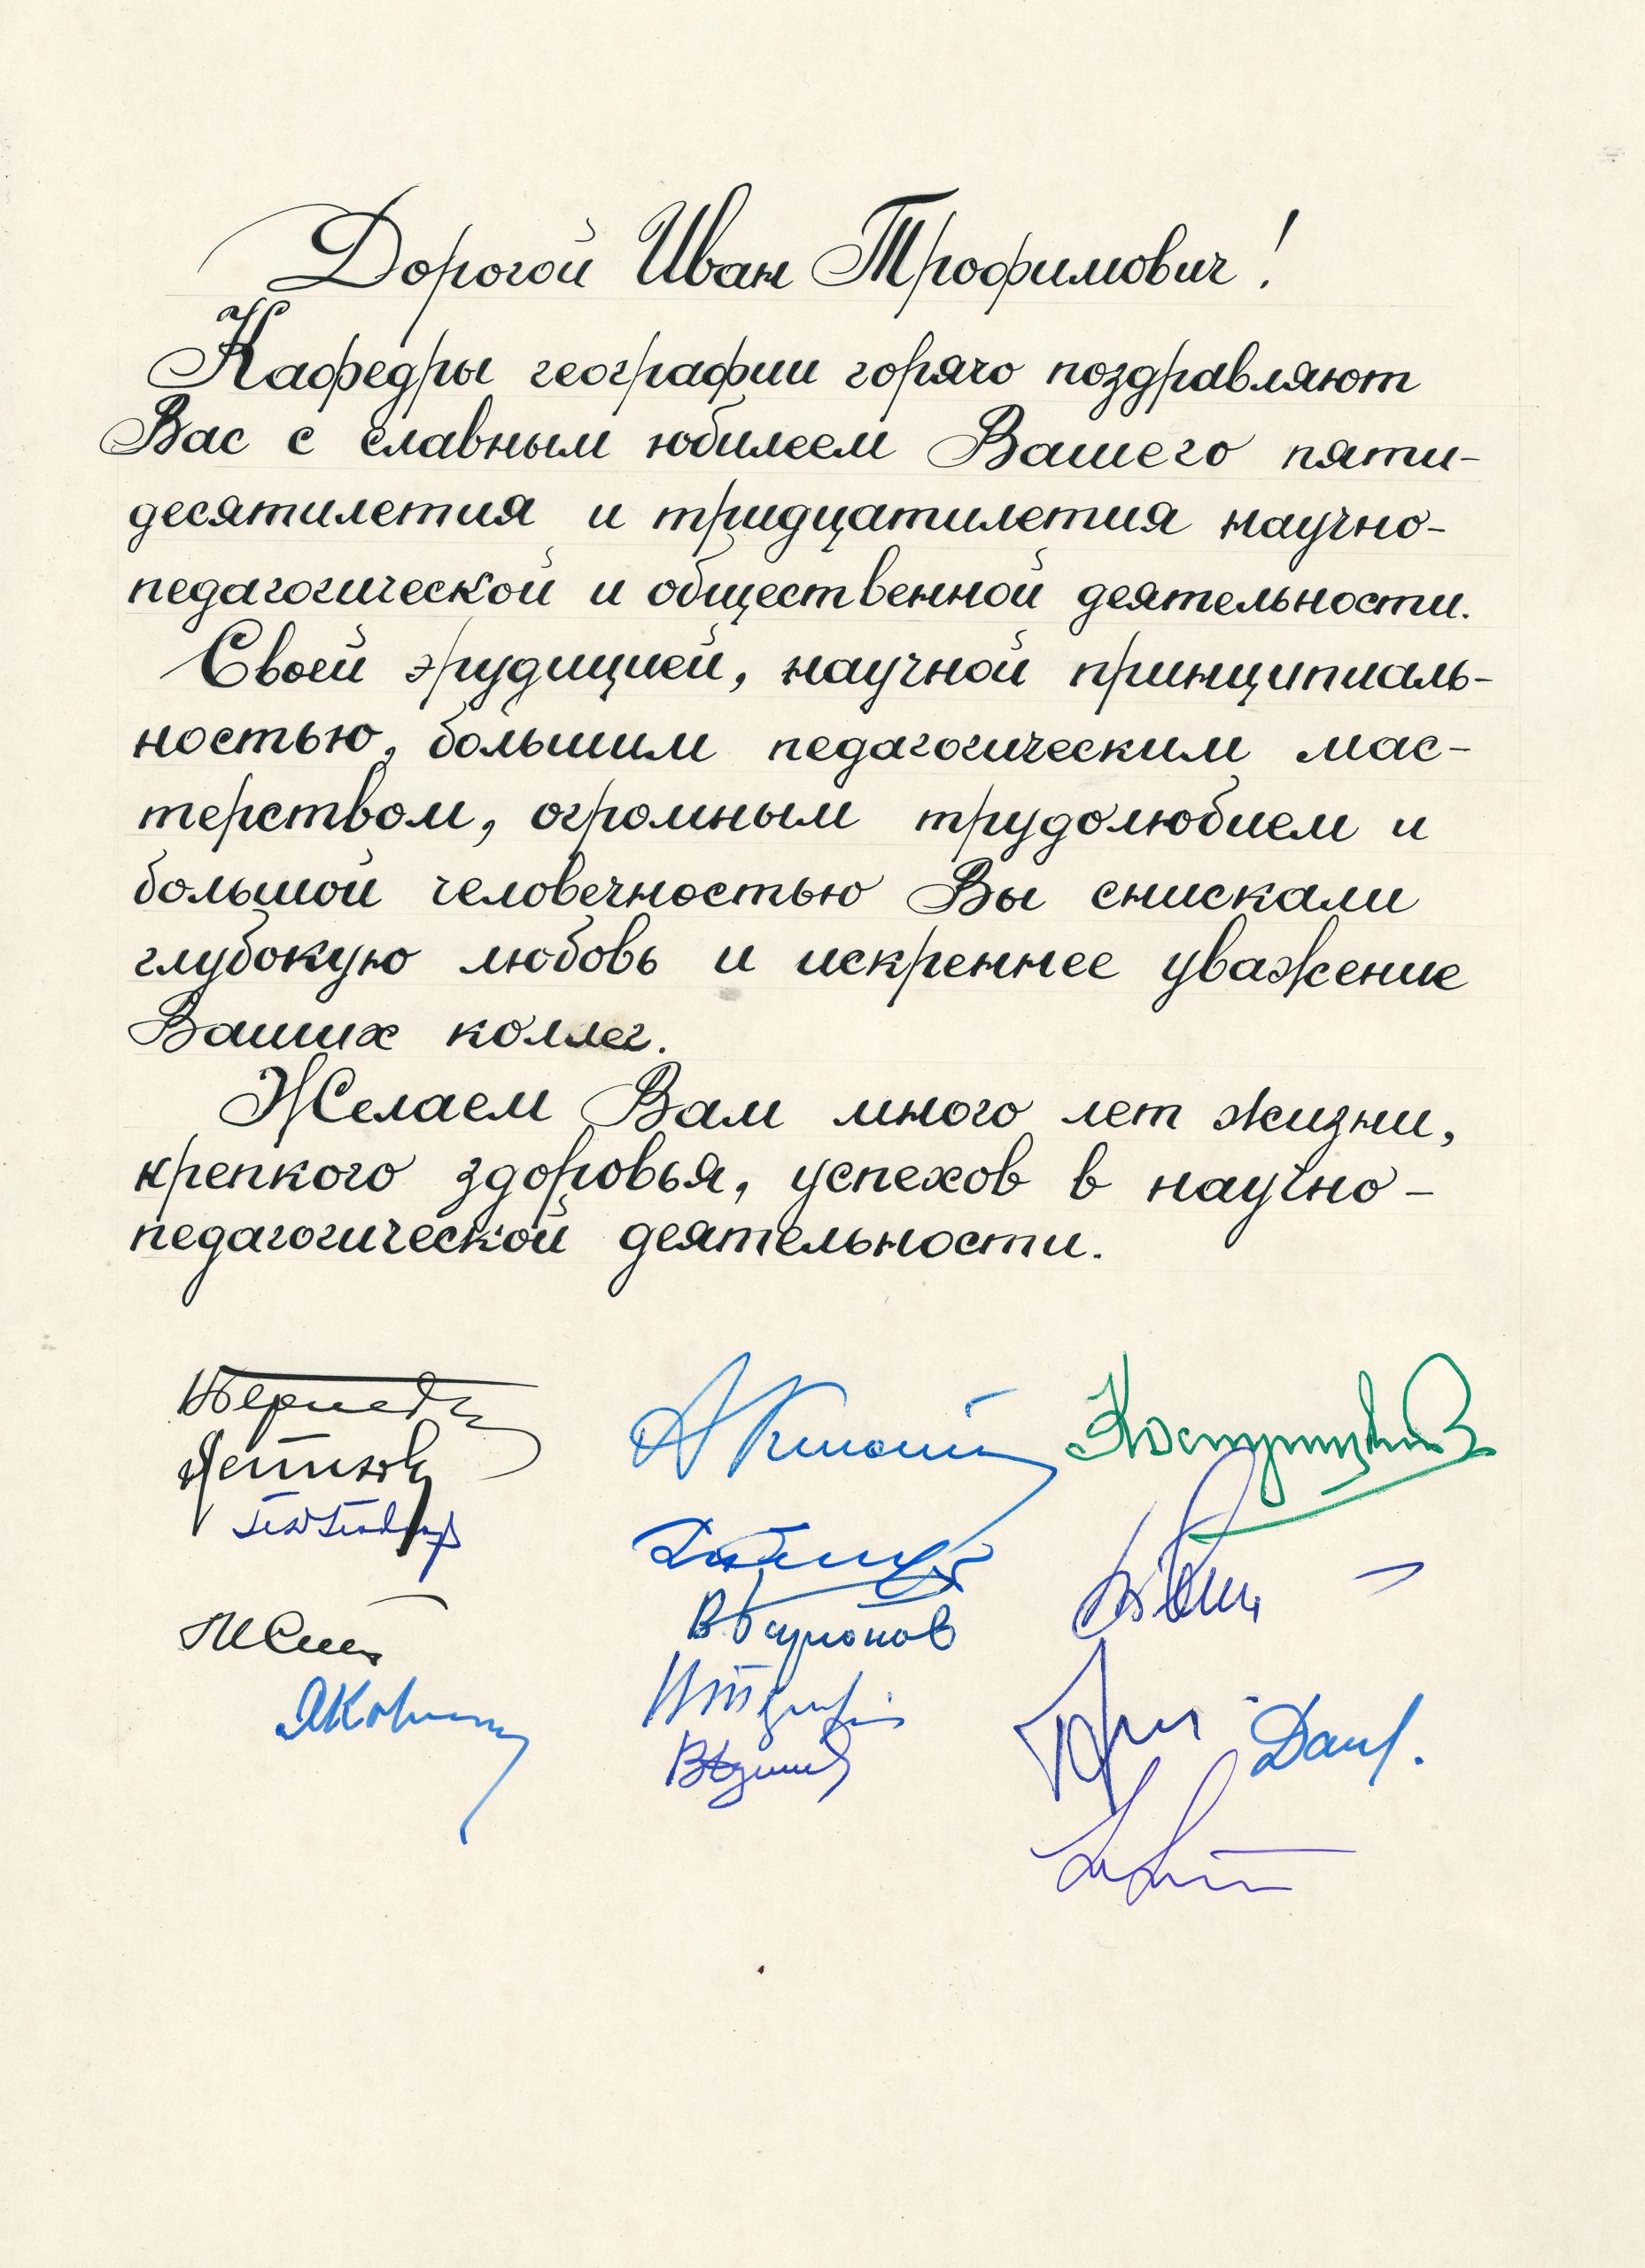 Дорогой Иван Трофимович!
Кафедры географии горячо поздравляют
Вас с славным юбилеем Вашего пяти-
десятилетия и тридцатилетия научно-
педагогической и общественной деятельности.
Своей эрудицией, научной принципиаль-
ностью, большим педагогическим мас-
терством, огромным трудолюбием и
большой человечностью Вы снискали
глубокую любовь и искреннее уважение
Ваших коллег.
Желаем Вам много лет жизни,
крепкого здоровья, успехов в научно-
педагогической деятельности.